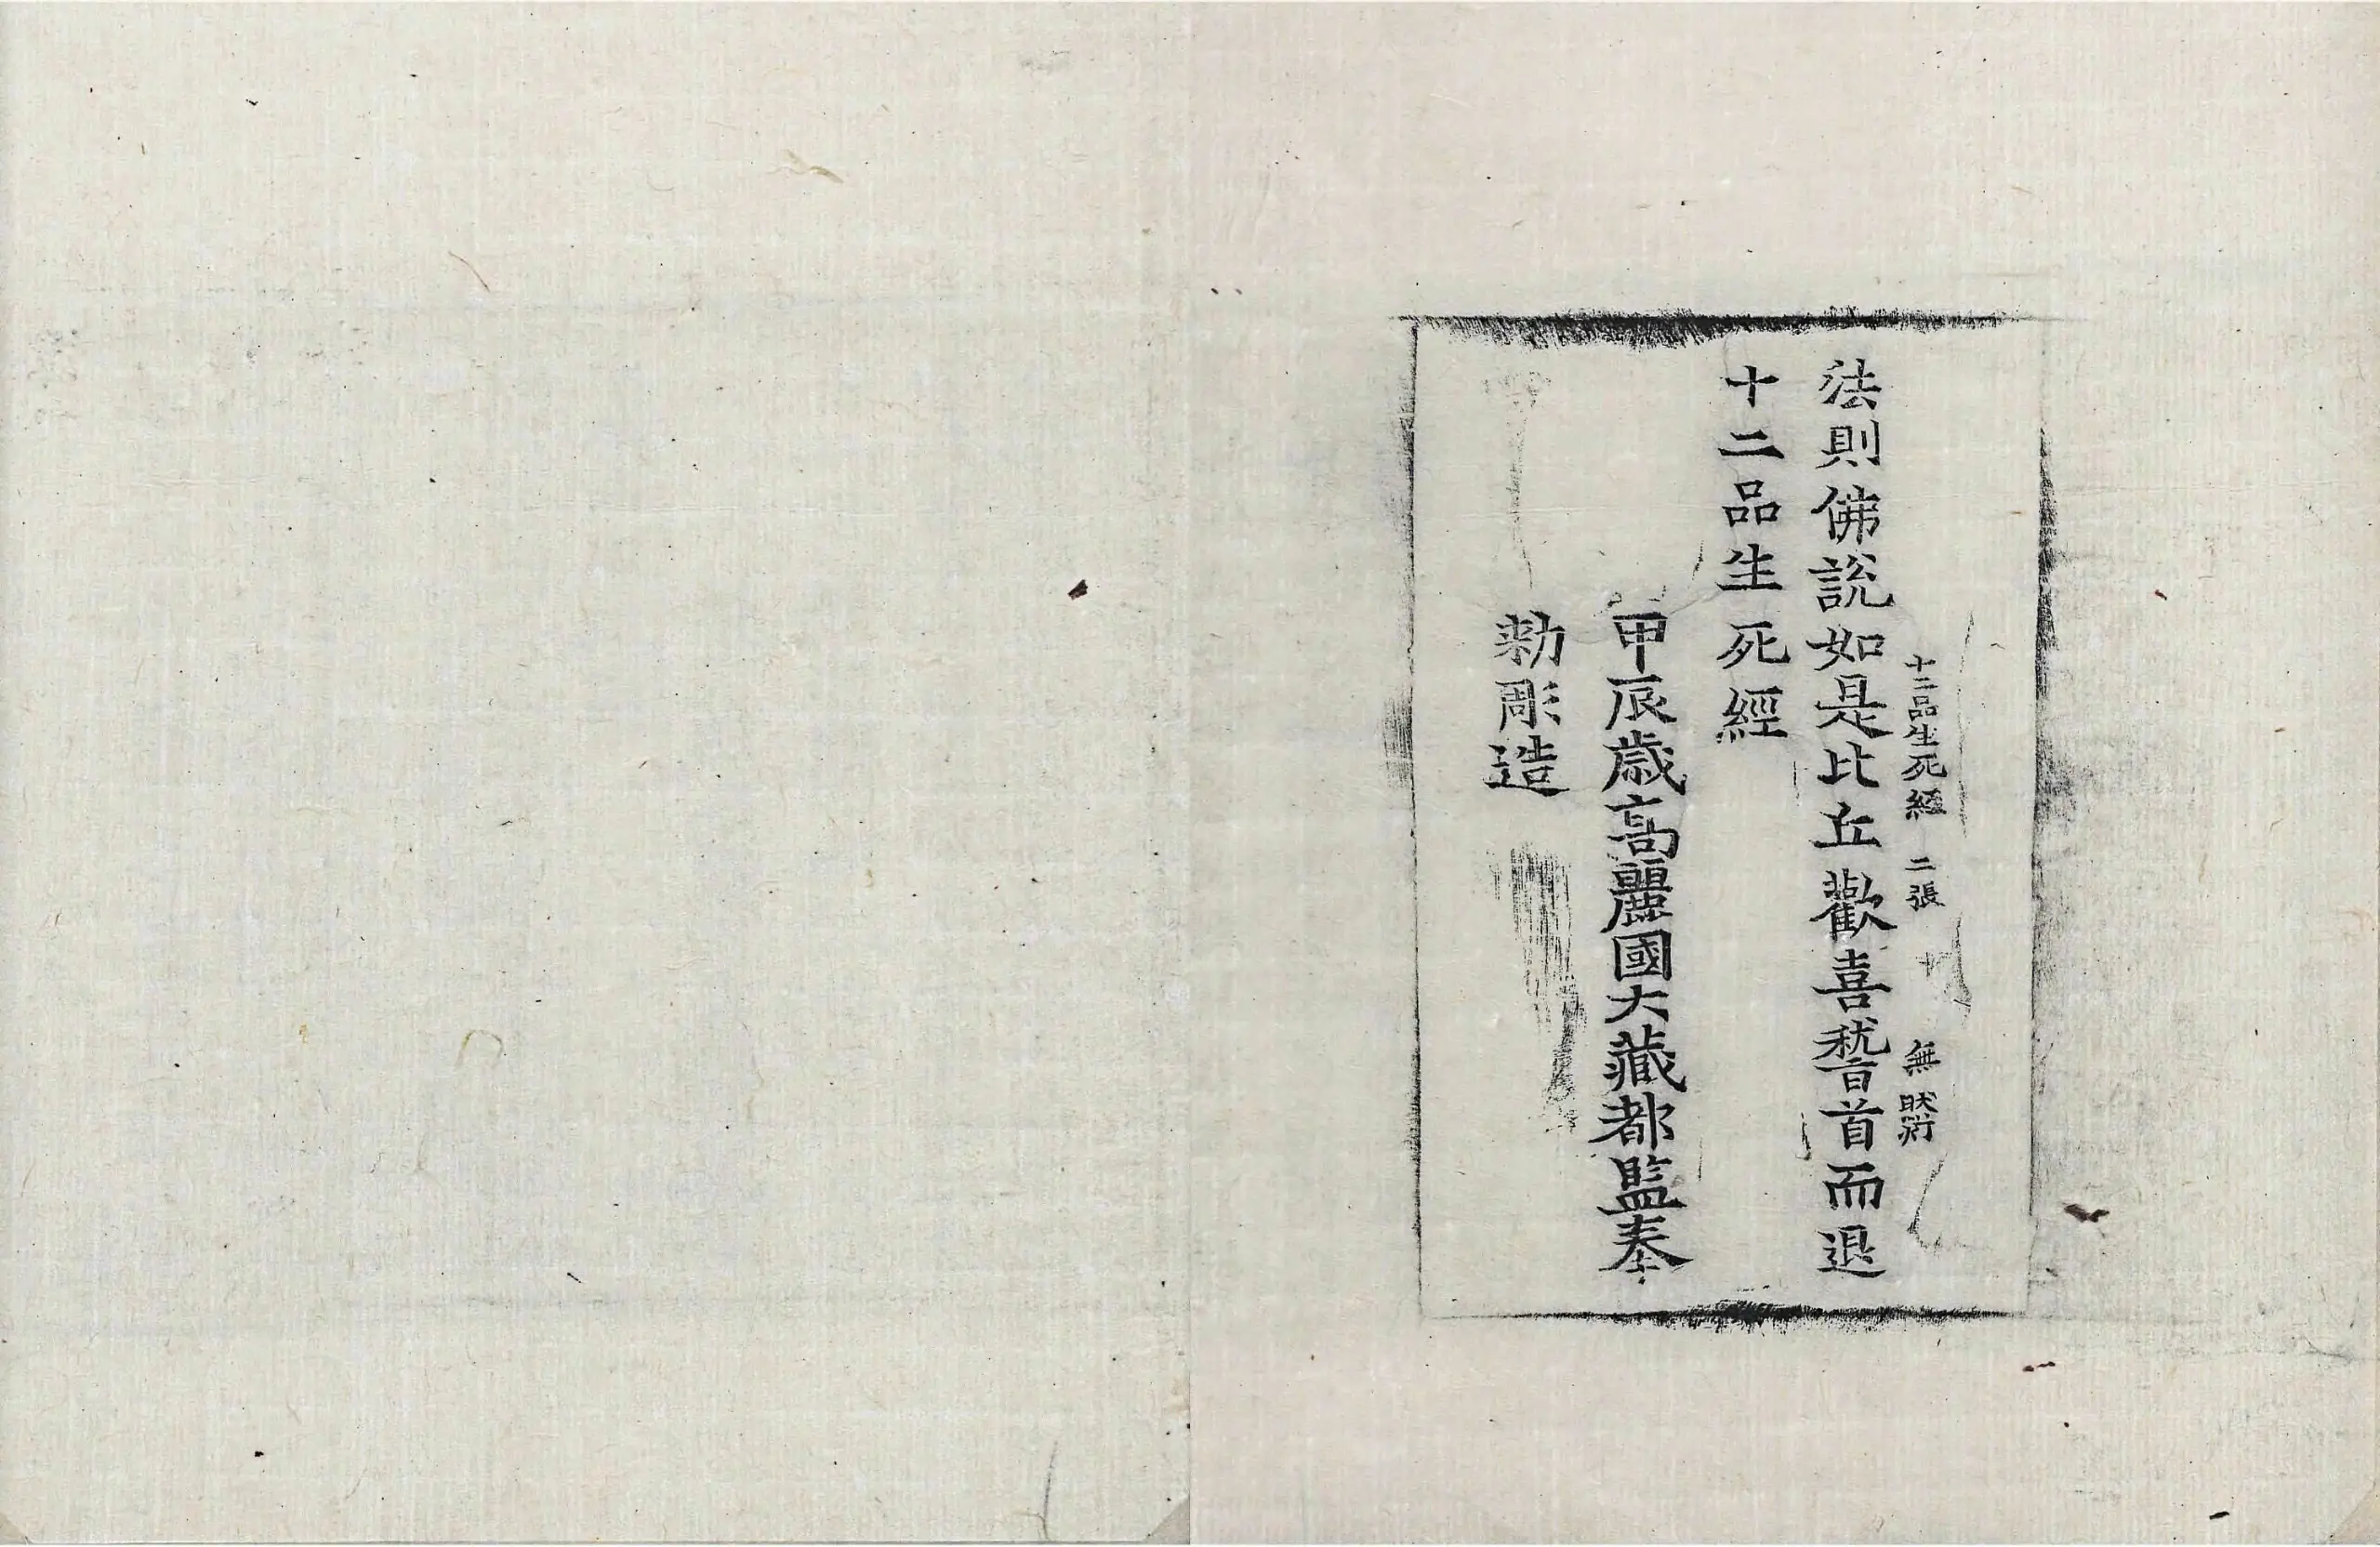 十二品生死經 二張 無
法則佛說如是比丘歡喜稽首而退
十二品生死經
甲辰歲高麗國大藏都監奉
勅彫造